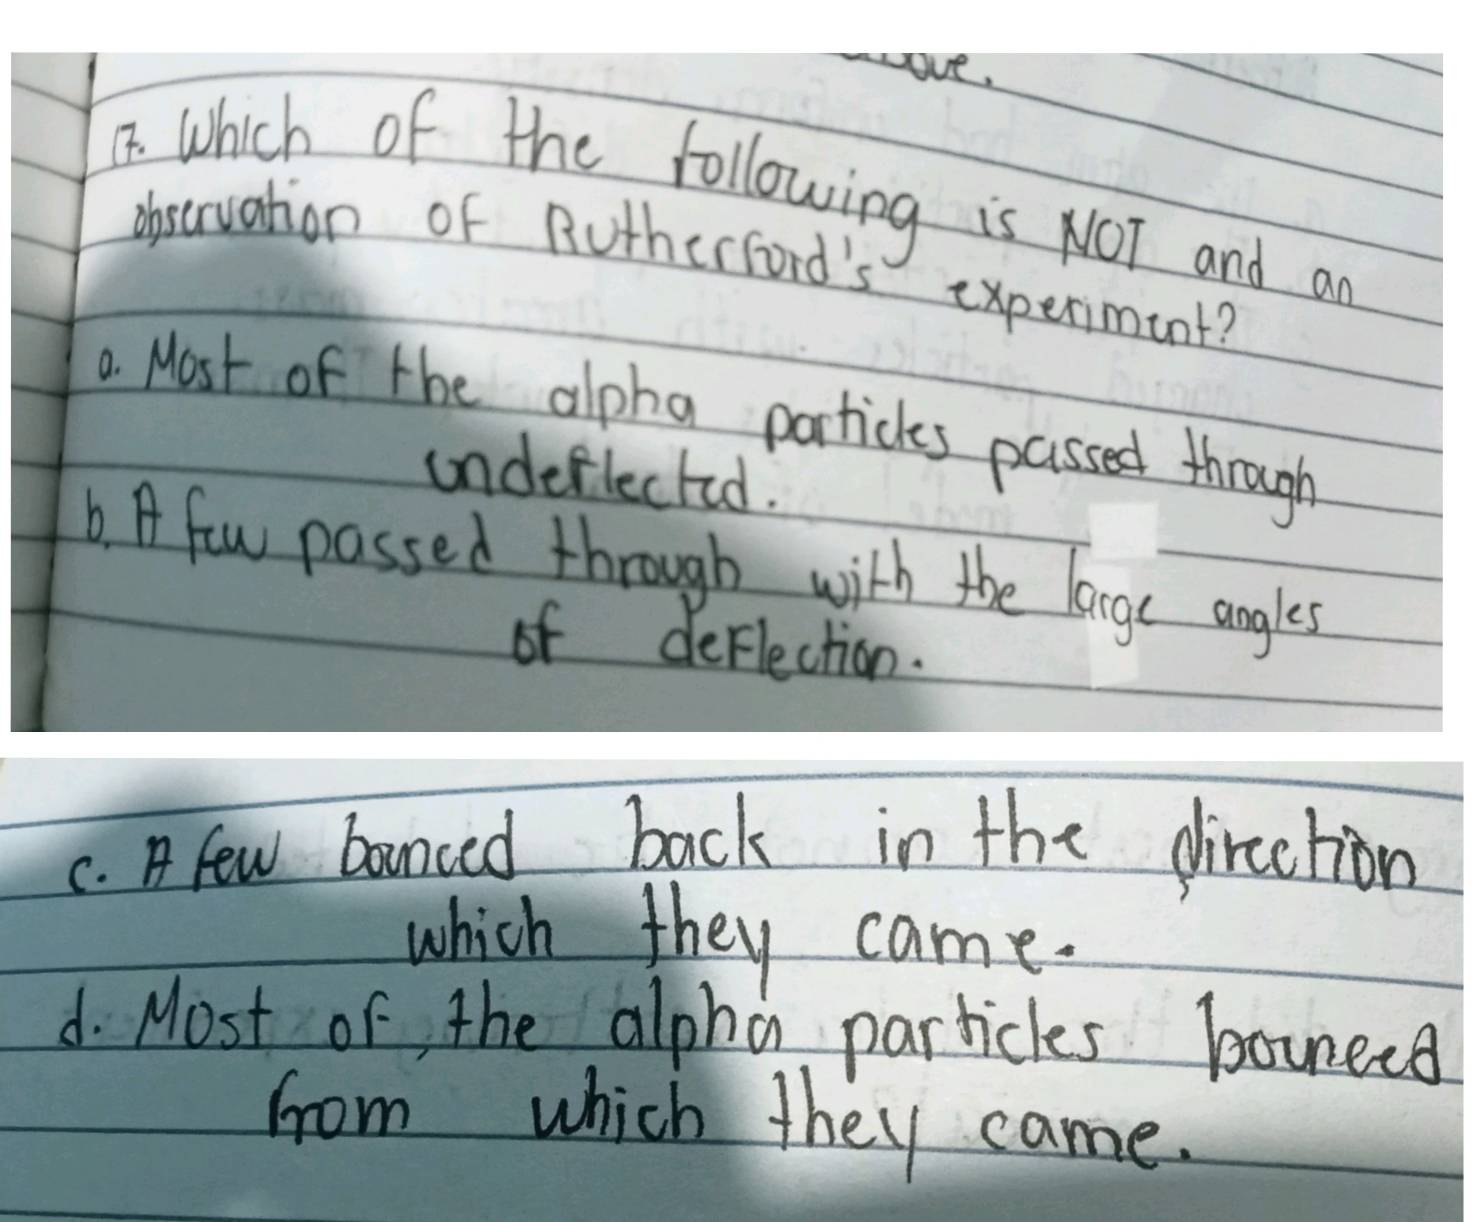 17. Which of the following is NOT and an
observation of Rutherford's experiment?
a. Most of the alpha particles passed through
undeflected.
b. A few passed through with the large angles
of deflection.
c. A few bounced back in the direction
which they came.
d. Most of the alpha particles bounced
from which they came.